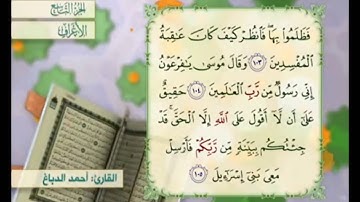 الجزء التاسع
الأعراف
فَظَلَمُوا۟ بِهَا ۖ فَٱنظُرْ كَيْفَ كَانَ عَـٰقِبَةُ
ٱلْمُفْسِدِينَ ١٠٣ وَقَالَ مُوسَىٰ يَـٰفِرْعَوْنُ
إِنِّى رَسُولٌ مِّن رَّبِّ ٱلْعَـٰلَمِينَ ١٠٤ حَقِيقٌ
عَلَىٰٓ أَن لَّآ أَقُولَ عَلَى ٱللَّهِ إِلَّا ٱلْحَقَّ ۚ قَدْ
جِئْتُكُم بِبَيِّنَةٍ مِّن رَّبِّكُمْ فَأَرْسِلْ
مَعِىَ بَنِىٓ إِسْرَٰٓءِيلَ ١٠٥
القارئ: أحمد الدباغ